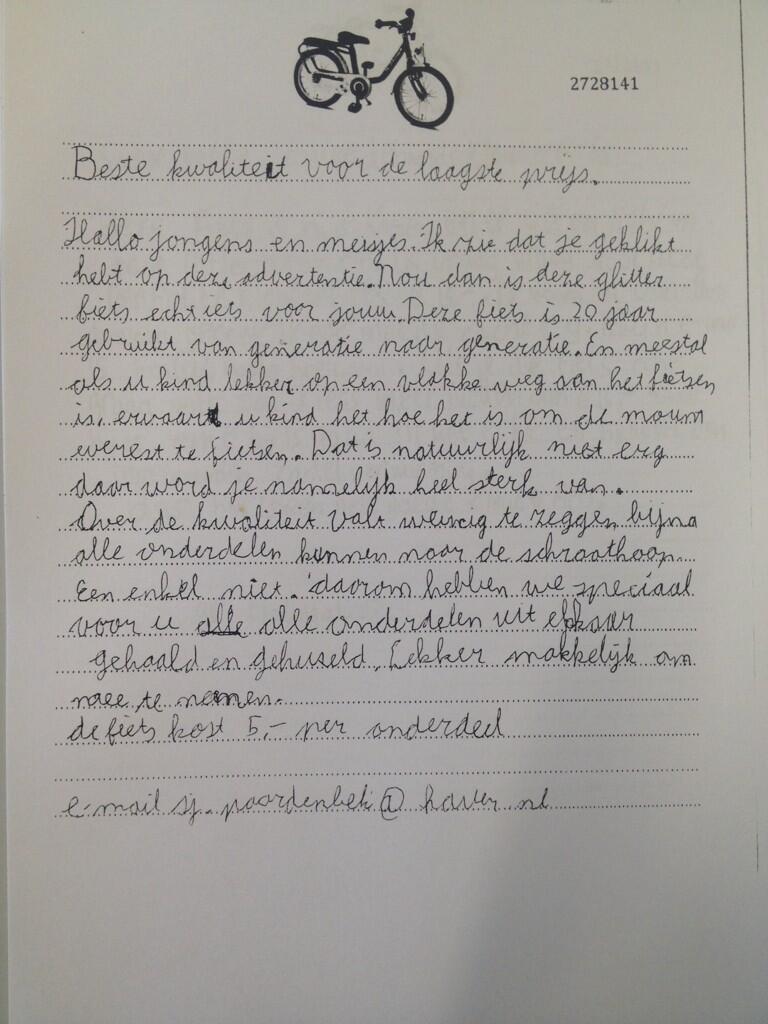 2728141
Beste kwaliteit voor de laagste prijs.
Hallo jongens en meisjes. Ik zie dat je geklikt
hebt op deze advertentie. Nou dan is deze glitter
fiets echt iets voor jouw. Deze fiets is 20 jaar
gebruikt van generatie naar generatie. En meestal
als u kind lekker op een vlakke weg aan het fietsen
is, ervaart u kind het hoe het is om de moum
everest te fietsen. Dat is natuurlijk niet erg
daar word je namelijk heel sterk van.
Over de kwaliteit valt weinig te zeggen bijna
alle onderdelen kunnen naar de schroothoop.
Een enkel niet. daarom hebben we speciaal
voor u alle alle onderdelen uit elkaar
gehaald en gehuseld. Lekker makkelijk om
mee te nemen.
de fiets kost 5,- per onderdeel
e-mail sj. paardenbek @ haver.nl